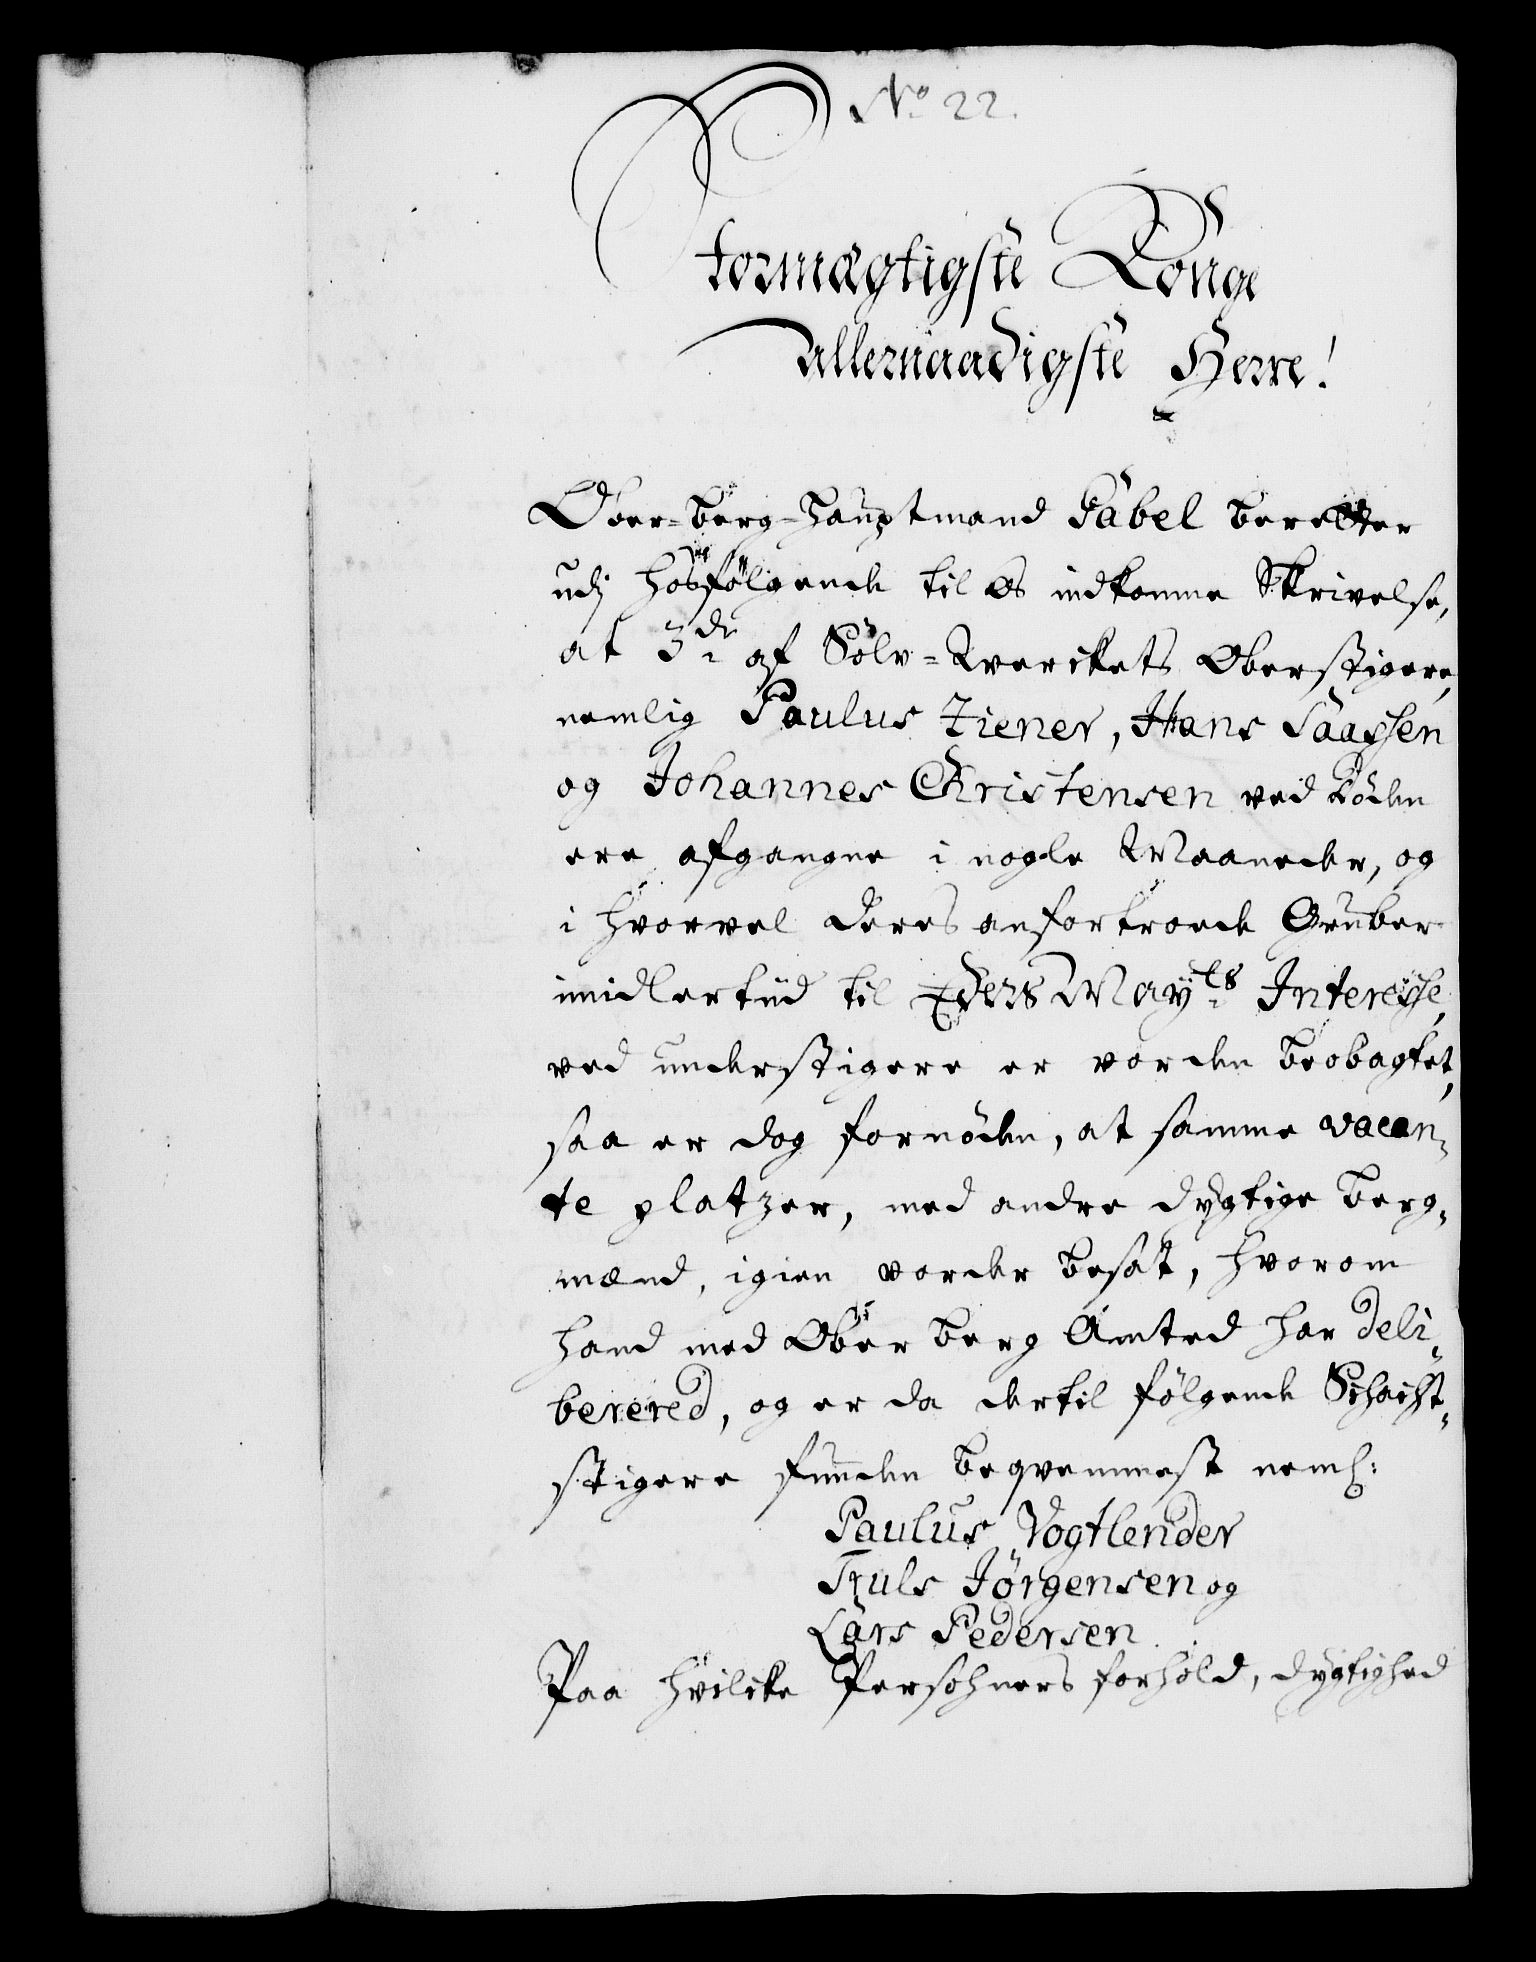 No 22.
Stormægtigste Konge
allernaadigste Herre!
Ober-Berg-Hauptmand Gabel beretter
udj hosfölgende til os indkomne Skrivelse,
at 3de af Sölv-Werckets Oberstigere,
nemlig Paulus Ziener, Hans Saassen
og Johannes Christensen ved döden
ere afgangne i nogle Maaneder, og
i hvorvel deres anfortroede Gruber
imidlertiid til Eders Mayts Interesse,
ved understigere er vorden beobagtet,
saa er dog fornöden, at samme vacan-
te platzer, med andre dygtige Berg-
mænd, igien vorder besat, hvorom
hand med Ober Berg Amted har deli-
berered, og er da dertil fölgende Schacht-
stigere funden beqvemmest neml:
Paulus Vogtlender
Truls Jörgensen og
Lars Pedersen
Paa hvilcke Persohners forhold, dygtighed